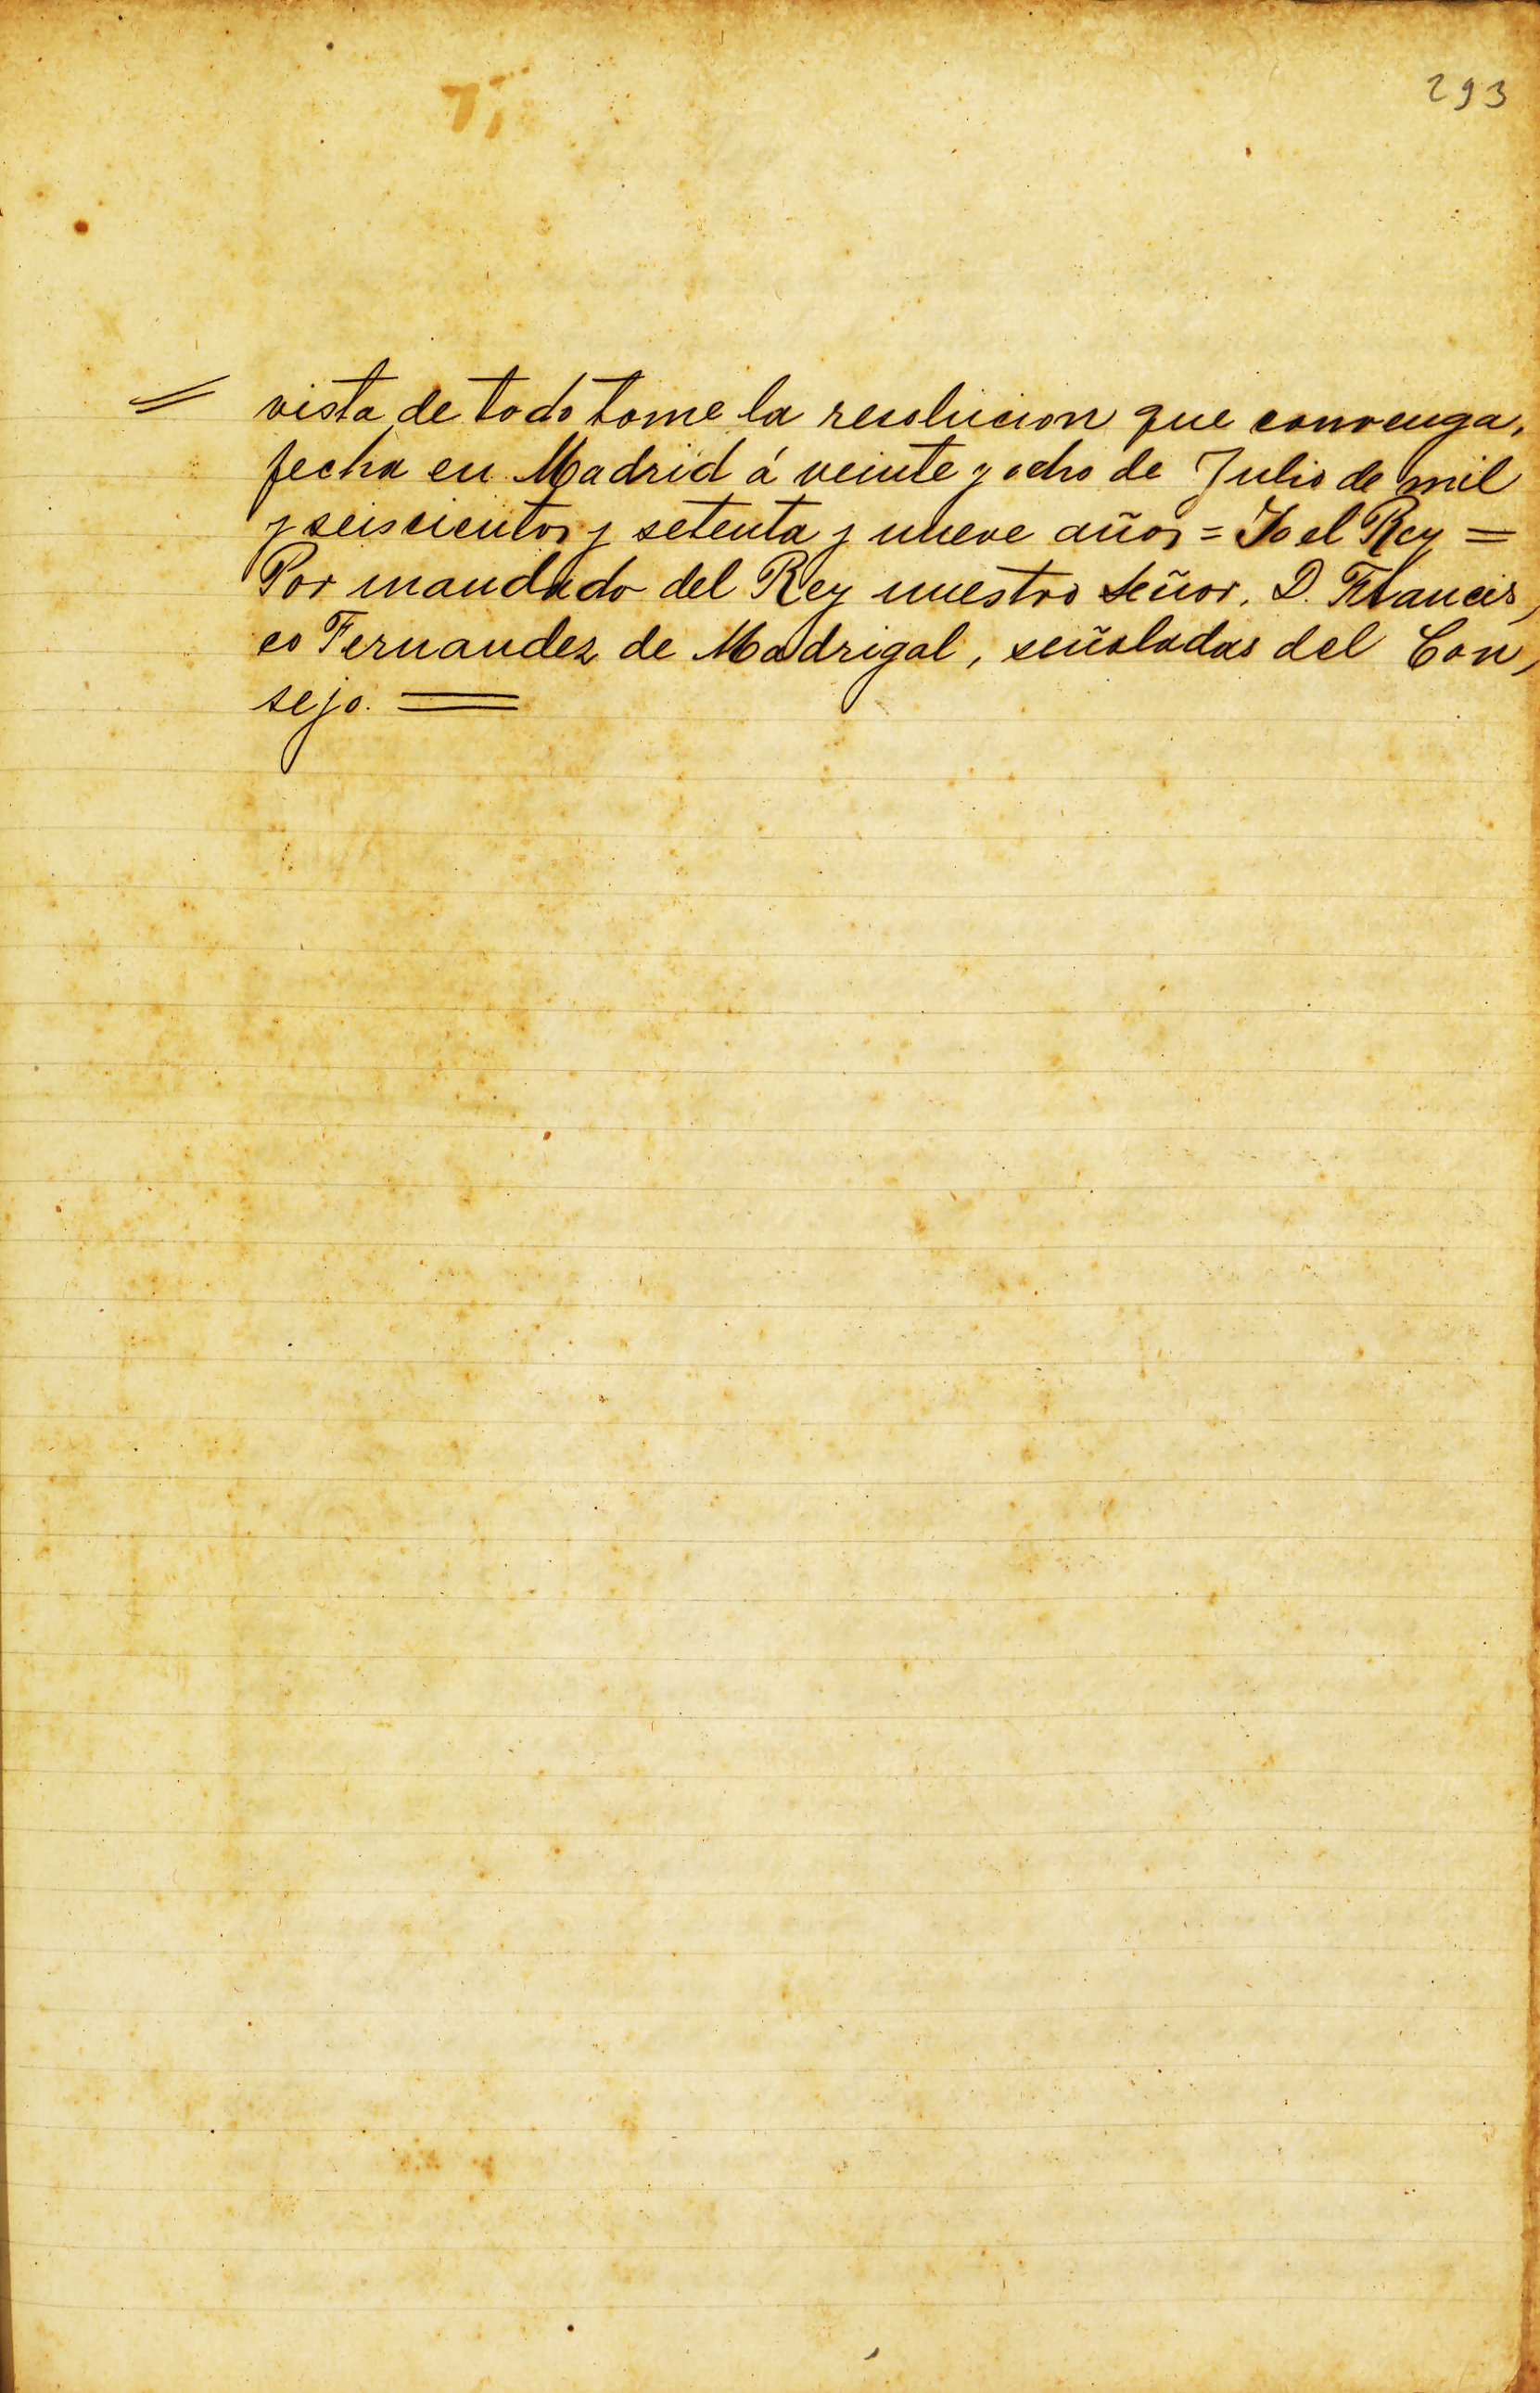 293
= vista de todo tome la resolucion que convenga,
fecha en Madrid á veinte y ocho de Julio de mil
y seiscientos y setenta y nueve años = Yo el Rey =
Por mandado del Rey nuestro señor, D. Francis,
co Fernandez de Madrigal, señaladas del Con,
sejo. =